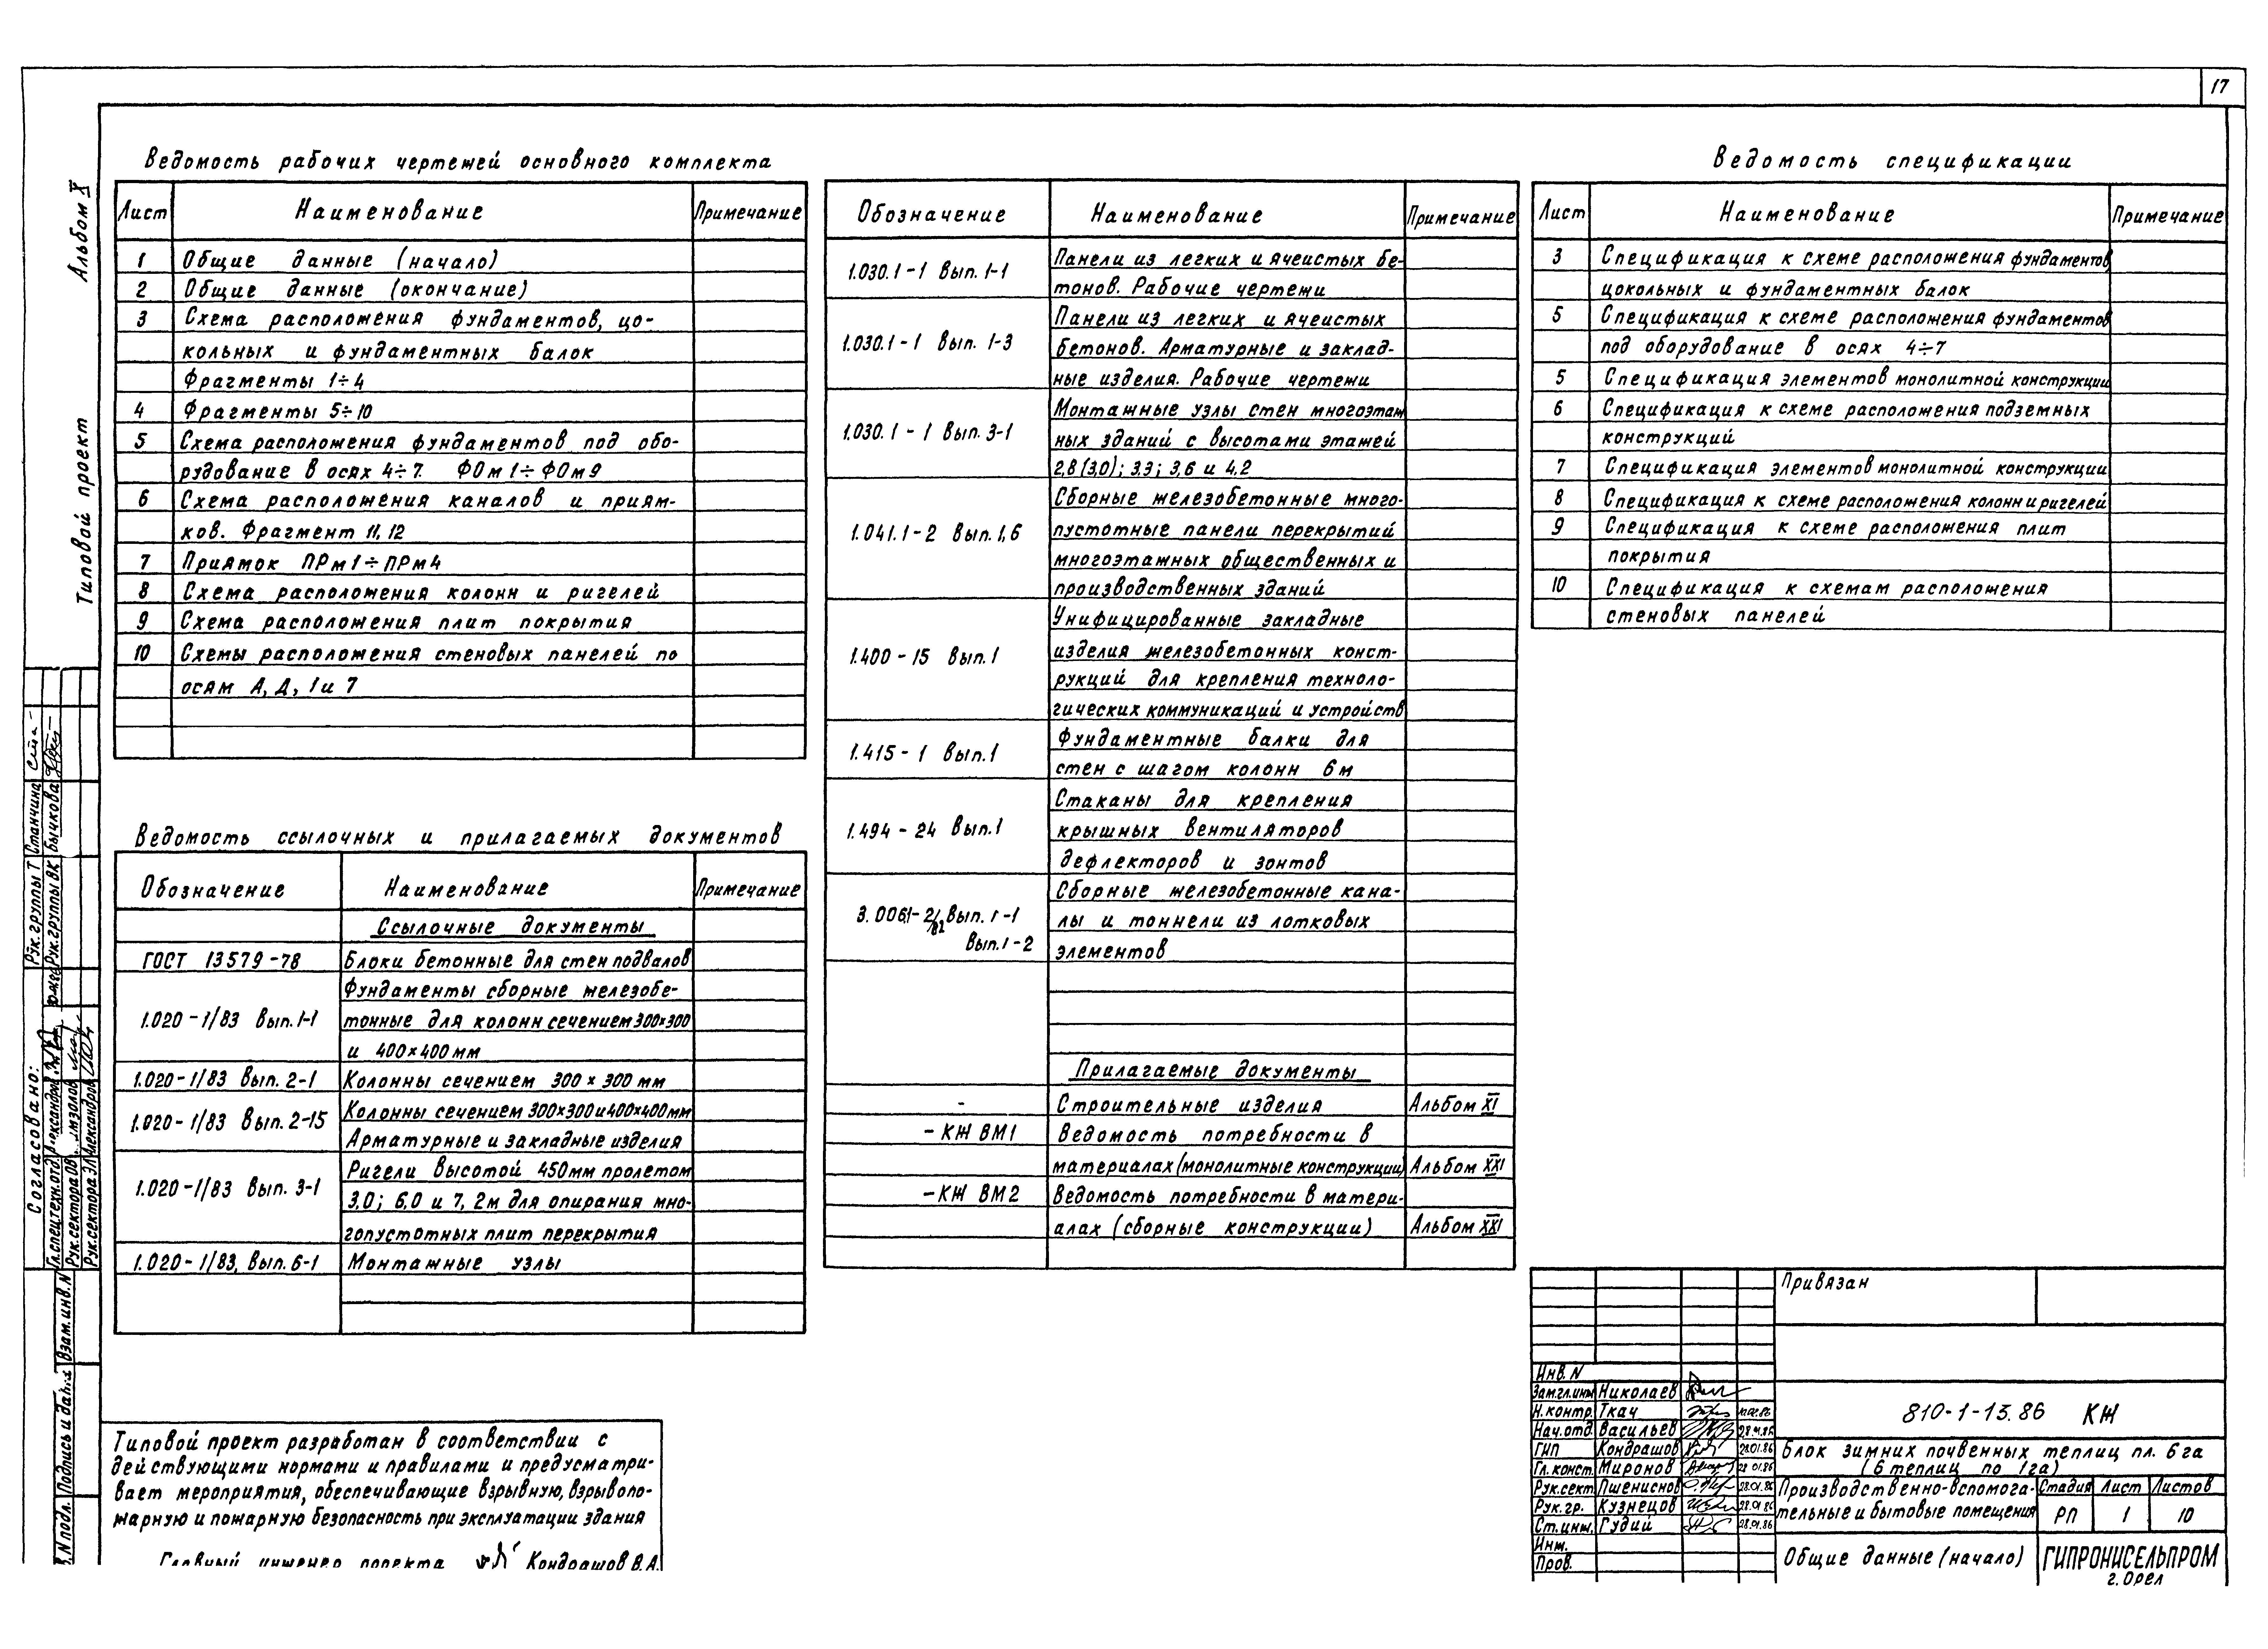 17
Альбом X
Типовой проект
Ведомость рабочих чертежей основного комплекта
Лист Наименование Примечание
1 Общие данные (начало)
2 Общие данные (окончание)
3 Схема расположения фундаментов, цо-
кольных и фундаментных балок
Фрагменты 1÷4
4 Фрагменты 5÷10
5 Схема расположения фундаментов под обо-
рудование в осях 4÷7. ФОм1÷ФОм9
6 Схема расположения каналов и приям-
ков. Фрагмент 11, 12
7 Приямок ПРм1÷ПРм4
8 Схема расположения колонн и ригелей
9 Схема расположения плит покрытия
10 Схемы расположения стеновых панелей по
осям А, Д, 1 и 7
Ведомость ссылочных и прилагаемых документов
Обозначение Наименование Примечание
Ссылочные документы
ГОСТ 13579-78 Блоки бетонные для стен подвалов
Фундаменты сборные железобе-
1.020-1/83 Вып. 1-1 тонные для колонн сечением 300×300
и 400×400 мм
1.020-1/83 Вып. 2-1 Колонны сечением 300×300 мм
1.020-1/83 Вып. 2-15 Колонны сечением 300×300 и 400×400 мм
Арматурные и закладные изделия
1.020-1/83 Вып. 3-1 Ригели высотой 450мм пролетом
3,0; 6,0 и 7,2м для опирания мно-
гопустотных плит перекрытия
1.020-1/83, Вып. 6-1 Монтажные узлы
Типовой проект разработан в соответствии с
действующими нормами и правилами и предусматри-
вает мероприятия, обеспечивающие взрывную, взрывопо-
жарную и пожарную безопасность при эксплуатации здания
Главный инженер проекта Кондрашов В.А.
Обозначение Наименование Примечание
1.030.1-1 Вып. 1-1 Панели из легких и ячеистых бе-
тонов. Рабочие чертежи
1.030.1-1 Вып. 1-3 Панели из легких и ячеистых
бетонов. Арматурные и заклад-
ные изделия. Рабочие чертежи
1.030.1-1 Вып. 3-1 Монтажные узлы стен многоэтаж
ных зданий с высотами этажей
2,8 (3,0); 3.3; 3,6 и 4,2
1.041.1-2 Вып. 1,6 Сборные железобетонные много-
пустотные панели перекрытий
многоэтажных общественных и
производственных зданий
1.400-15 Вып. 1 Унифицированные закладные
изделия железобетонных конст-
рукций для крепления техноло-
гических коммуникаций и устройств
1.415-1 Вып. 1 Фундаментные балки для
стен с шагом колонн 6м
1.494-24 Вып. 1 Стаканы для крепления
крышных вентиляторов
дефлекторов и зонтов
3.006.1-2/82 Вып. 1-1 Сборные железобетонные кана-
Вып. 1-2 лы и тоннели из лотковых
элементов
Прилагаемые документы
- Строительные изделия Альбом XI
-КЖ ВМ1 Ведомость потребности в
материалах (монолитные конструкции) Альбом XXI
-КЖ ВМ2 Ведомость потребности в матери-
алах (сборные конструкции) Альбом XXI
Ведомость спецификации
Лист Наименование Примечание
3 Спецификация к схеме расположения фундаментов,
цокольных и фундаментных балок
5 Спецификация к схеме расположения фундаментов
под оборудование в осях 4÷7
5 Спецификация элементов монолитной конструкции
6 Спецификация к схеме расположения подземных
конструкций
7 Спецификация элементов монолитной конструкции
8 Спецификация к схеме расположения колонн и ригелей
9 Спецификация к схеме расположения плит
покрытия
10 Спецификация к схемам расположения
стеновых панелей
Привязан
Инв. N
Зам.гл.инж Николаев
Н. контр. Ткач
Нач.отд. Васильев 28.01.86
ГИП Кондрашов 28.01.86
Гл. конст. Миронов 28.01.86
Рук.сект. Пшениснов 28.01.86
Рук. гр. Кузнецов 28.01.86
Ст.инж. Гудий 28.01.86
Инж.
Пров.
810-1-13.86 КЖ
Блок зимних почвенных теплиц пл. 6га
(6 теплиц по 1га)
Производственно-вспомога-
тельные и бытовые помещения
Стадия Лист Листов
РП 1 10
Общие данные (начало)
ГИПРОНИСЕЛЬПРОМ
г. Орел
Согласовано:
Рук.группы Т Станчина
Рук.группы ВК Бычкова
Гл.спец.техн.отд.
Рук.сектора ОВ
Рук.сектора ЭЛ Александров
Взам.инв.N
Подпись и дата
N подл.